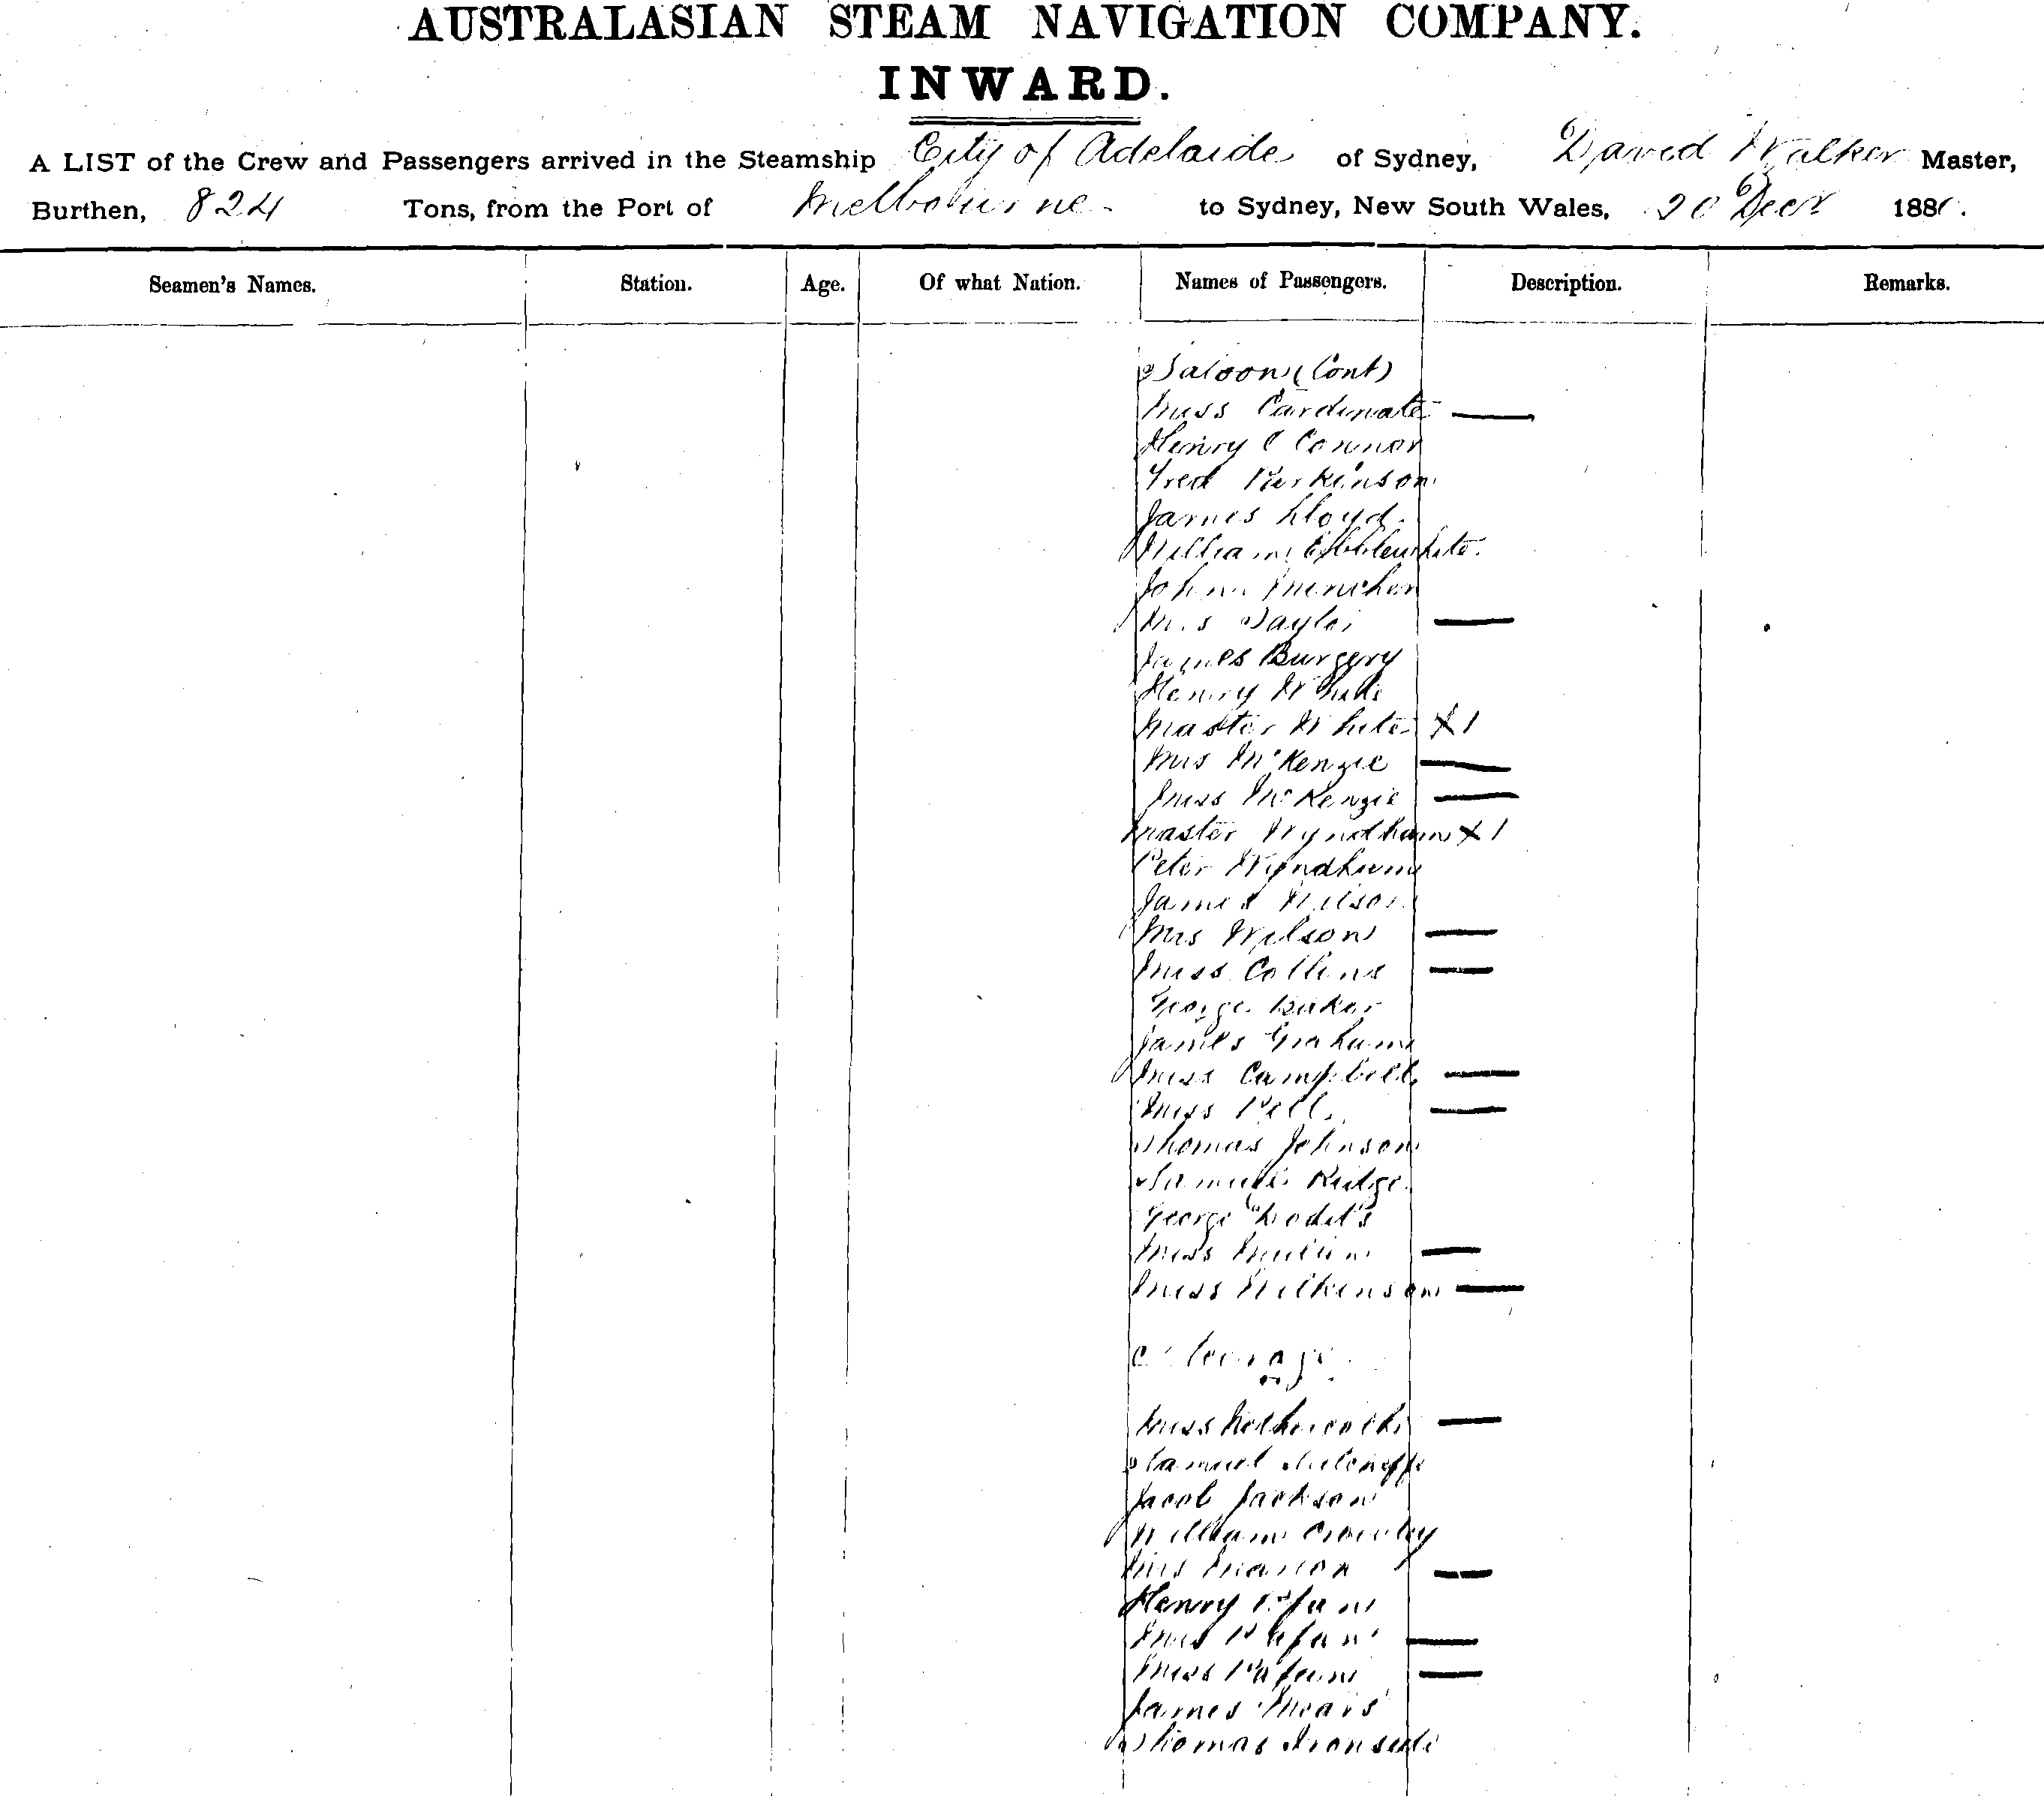 AUSTRALASIAN STEAM NAVIGATION COMPANY.
INWARD.
A LIST of the Crew and Passengers arrived in the Steamship City of Adelaide of Sydney, David Walker Master,
Burthen, 824 Tons, from the Port of Melbourne to Sydney, New South Wales, 20 Decr 188
Seamen's Names. Station. Age. Of what Nation. Names of Passengers. Description. Remarks.
Saloon (Cont)
Miss Cardinate
Henry O Connor
Fred Parkinson
James Lloyd
William Ebblewhite
John Minchen
Mrs Taylor
James Burgery
Henry White
Master White X 1
Mrs McKenzie
Miss McKenzie
Master Wyndham X 1
Peter Wyndham
James Wilson
Mrs Wilson
Miss Collins
George Baker
James Graham
Miss Campbell
Miss Pell
Thomas Johnson
Samuel Rudge
George Dodds
Miss
Miss Wilkinson
Steerage
Miss
Samuel
Jacob Jackson
William Crowley
Henry
Miss
James Mears
Thomas Ironside